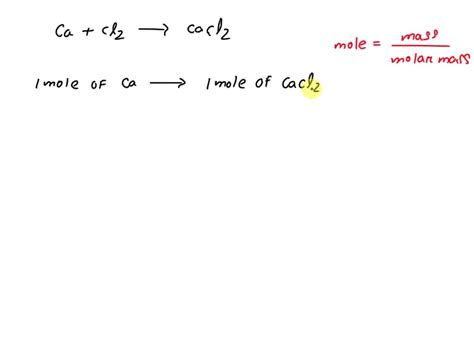 Ca + cl2 ⟶ cacl2
mole = mass / molar mass
1 mole of Ca ⟶ 1 mole of Cacl2